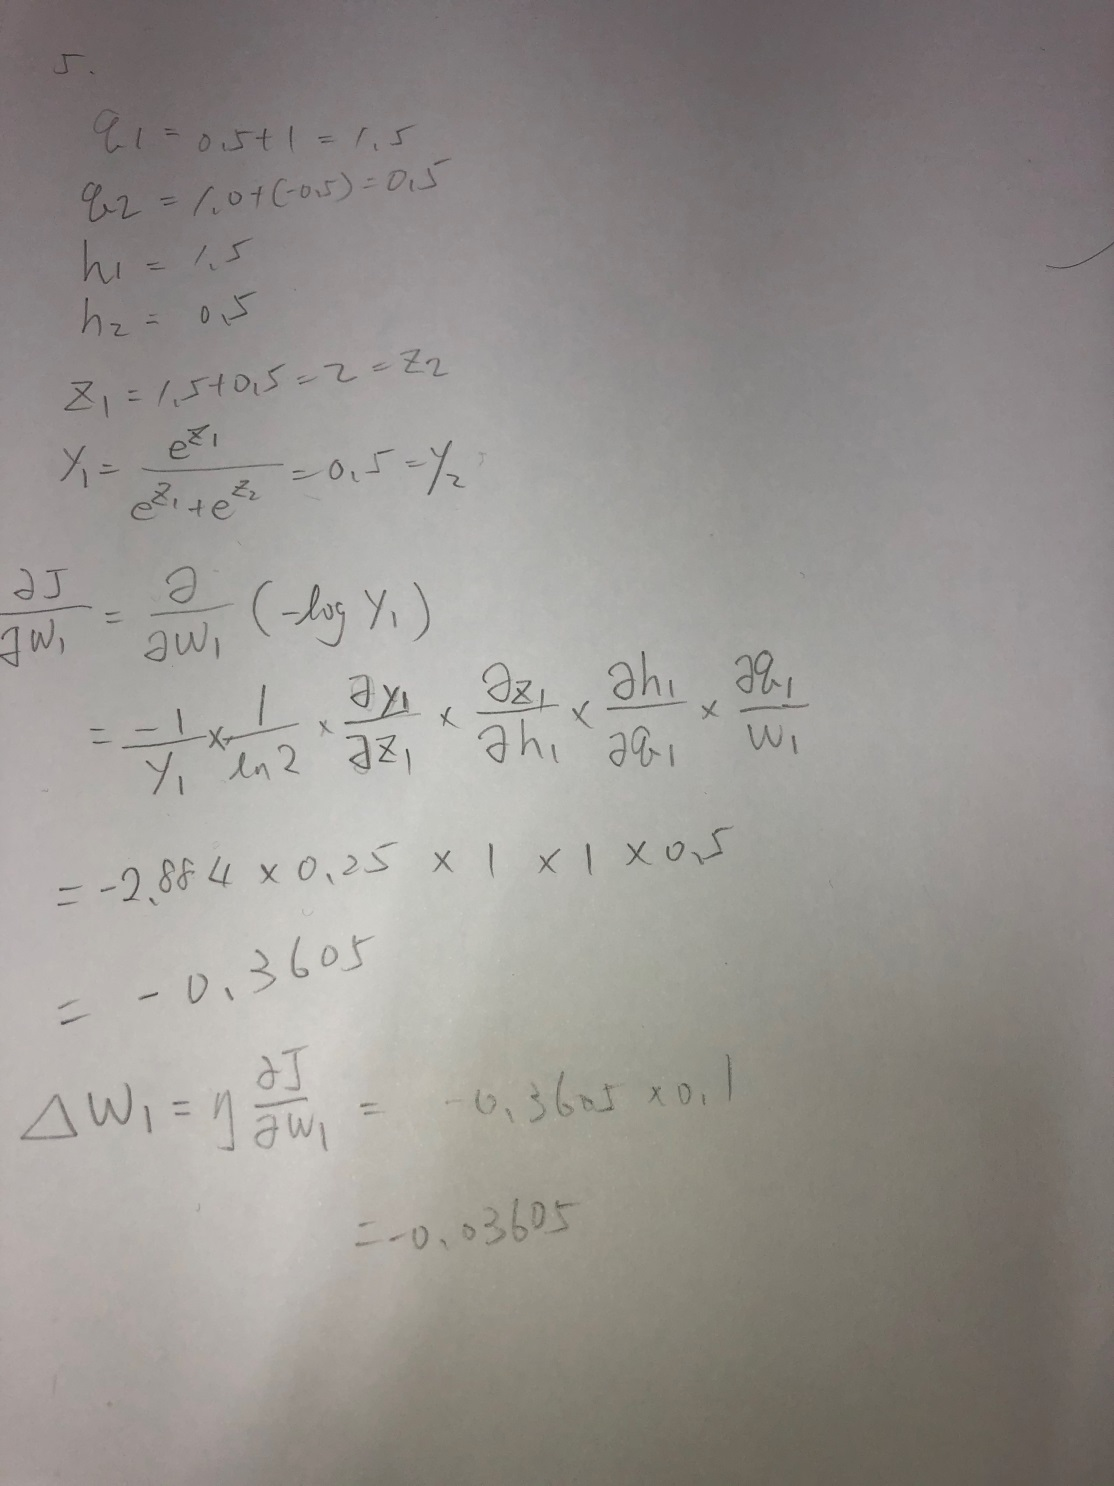 5.
q1 = 0.5+1 = 1.5
q2 = 1.0+(-0.5) = 0.5
h1 = 1.5
h2 = 0.5
Z1 = 1.5+0.5 = 2 = Z2
Y1 = e^Z1 / (e^Z1 + e^Z2) = 0.5 = Y2
∂J/∂W1 = ∂/∂W1 (-log Y1)
= -1/Y1 × 1/ln2 × ∂Y1/∂Z1 × ∂Z1/∂h1 × ∂h1/∂q1 × ∂q1/W1
= -2.884 × 0.25 × 1 × 1 × 0.5
= -0.3605
ΔW1 = η ∂J/∂W1 = -0.3605 × 0.1
= -0.03605